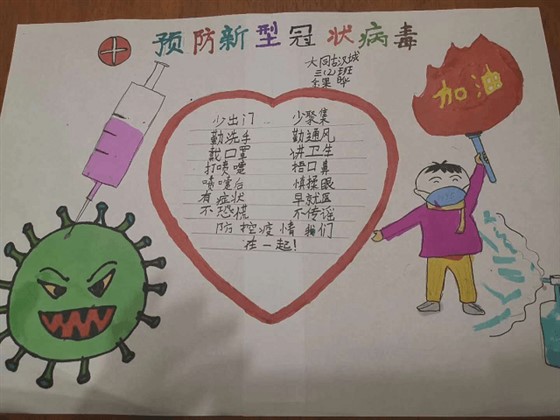 预防新型冠状病毒
三(2)班
加油
少出门 少聚集
勤洗手 勤通风
戴口罩 讲卫生
打喷嚏 捂口鼻
喷嚏后 慎揉眼
有症状 早就医
不恐慌 不传谣
防控疫情 我们
在一起!